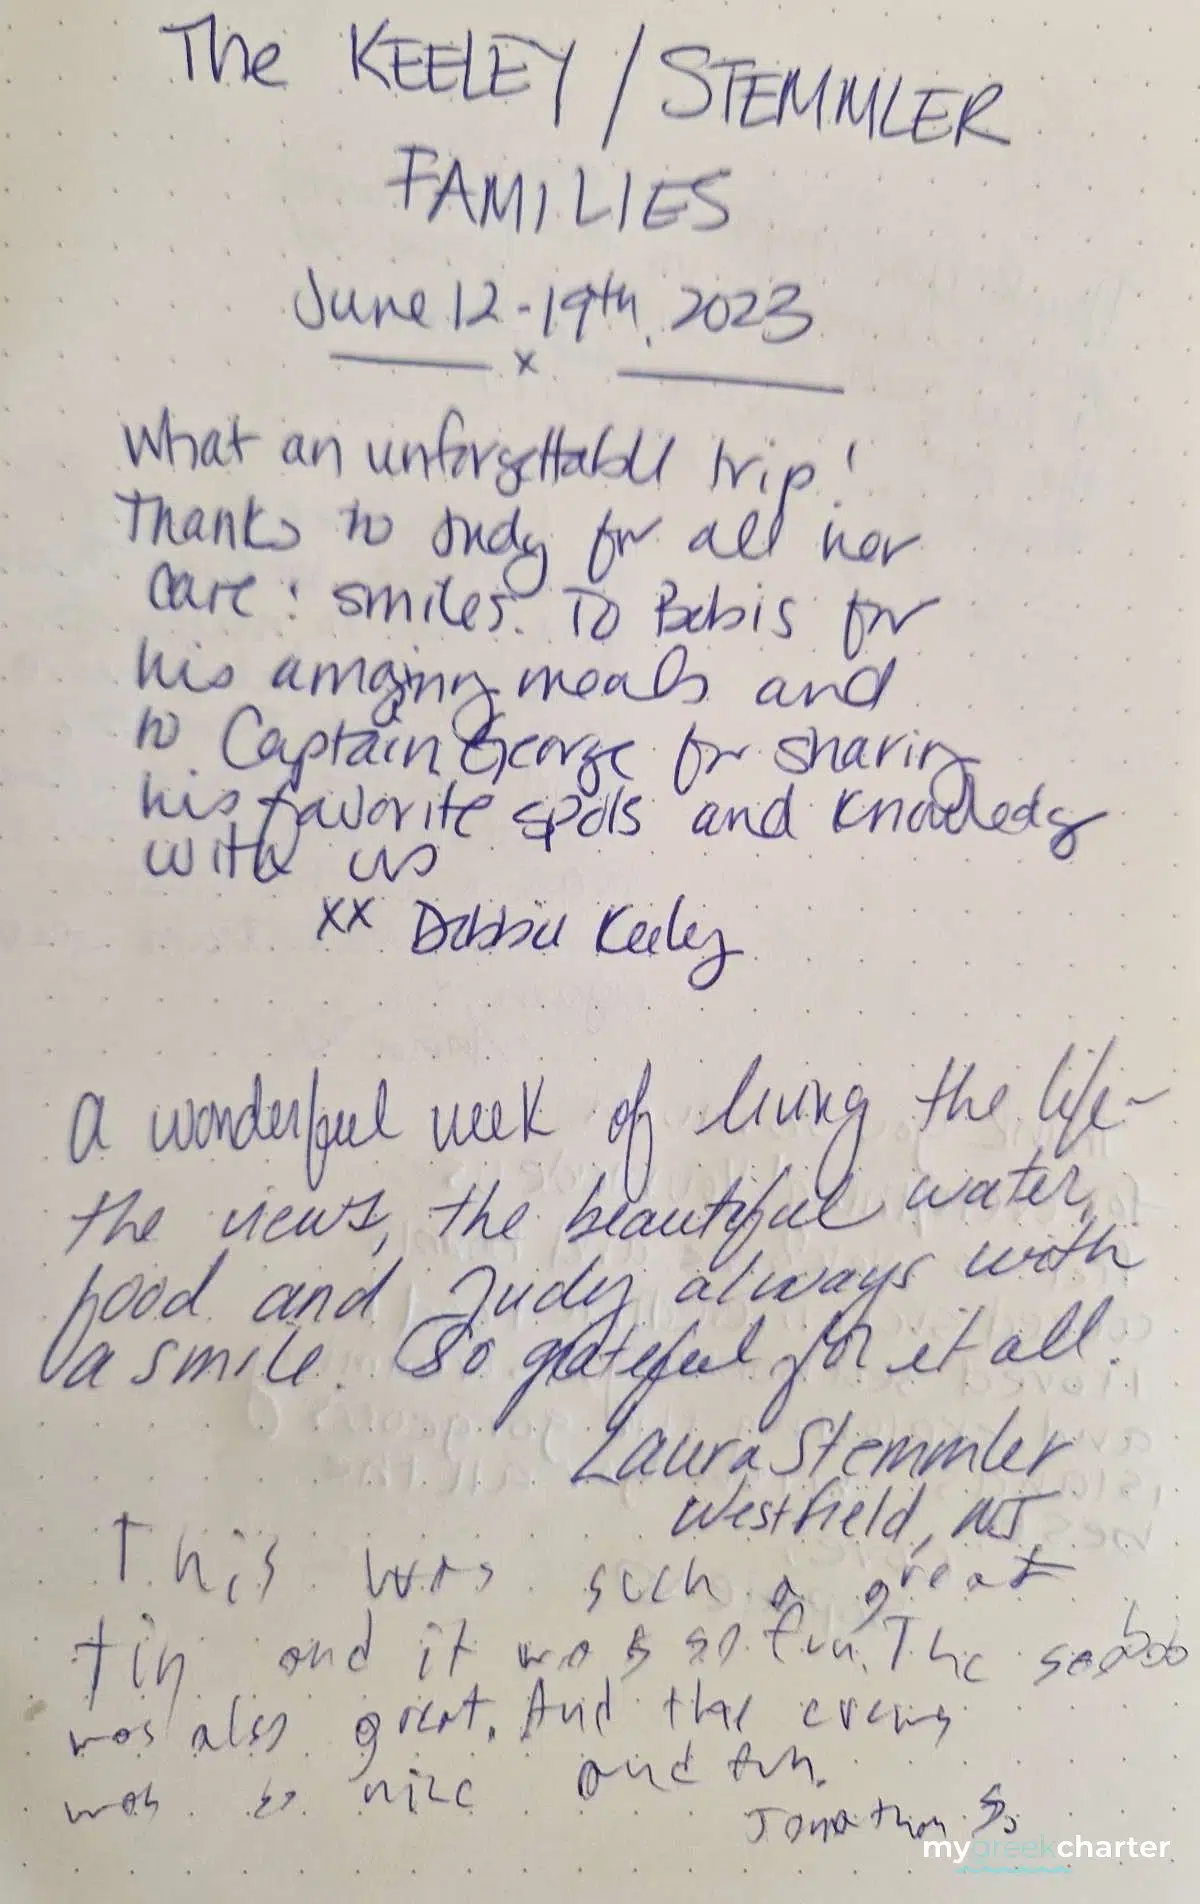 The KEELEY / STEMMLER
FAMILIES
June 12-19th, 2023
x
What an unforgettable trip!
Thanks to Judy for all her
care & smiles. To Babis for
his amazing meals and
to Captain George for sharing
his favorite spots and knowledg
with us
xx Debbie Keeley
A wonderful week of living the life-
the views, the beautiful water,
food and Judy always with
a smile. So grateful for it all.
Laura Stemmler
Westfield, NJ
This was such a great
and it was so fun. The seabob
was also great. And the
was so nice and fun.
Jonathan S.
mygreekcharter